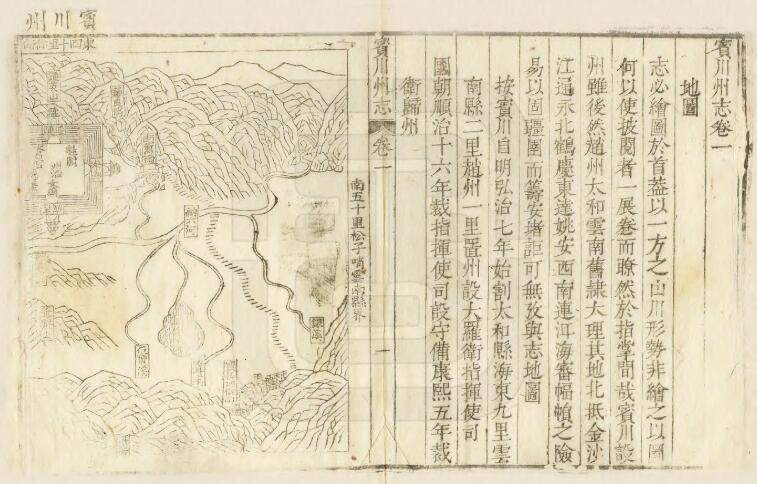 賓川州志卷一
地圖
志必繪圖於首葢以一方之山川形勢非繪之以圖
何以使披閱者一展卷而瞭然於指掌間哉賓川設
州雖後然趙州太和雲南舊隸大理其地北抵金沙
江逼永北鶴慶東達姚安西南連洱海審幅幀之險
易以固疆圉而籌安堵詎可無攷與志地圖
按賓川自明弘治七年始割太和縣海東九里雲
南縣二里趙州一里置州設大羅衛指揮使司
國朝順治十六年裁指揮使司設守備康熙五年裁
衛歸州
賓川州志
卷一
一
南五十里松子哨雲南縣界
賓川州
東四十里